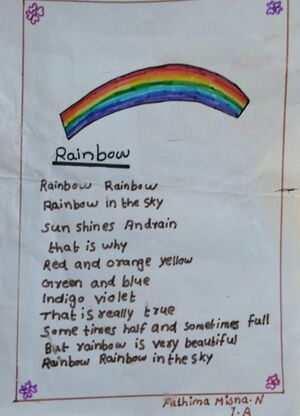 Rainbow
Rainbow Rainbow
Rainbow in the sky
Sun shines Andrain
that is why
Red and orange yellow
Green and blue
Indigo violet
That is really true
Some times half and sometimes full
But rainbow is very beautiful
Rainbow Rainbow in the sky
Fathima Misna.N
1.A